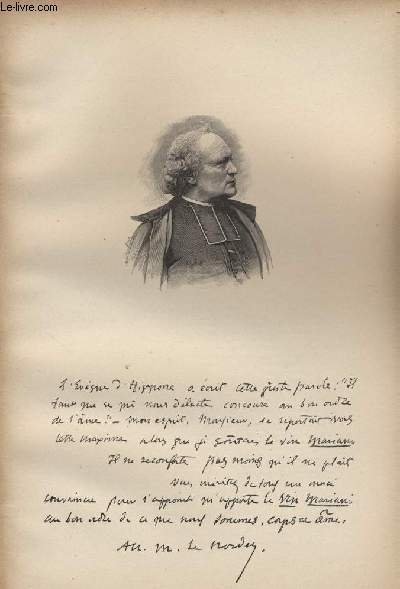 Le-livre.com
L'Evêque d'Hippone a écrit cette juste parole: "Il
faut que ce qui nous délecte concoure au bon ordre
de l'âme". - mon esprit, Monsieur, se reportait vers
cette maxime alors que je goûtais le vin Mariani
Il ne réconforte pas moins qu'il ne plait
de tous un merci
convaincu pour l'appoint qu'apporte le Vin Mariani
au bon ordre de ce que nous sommes, corps et âme.